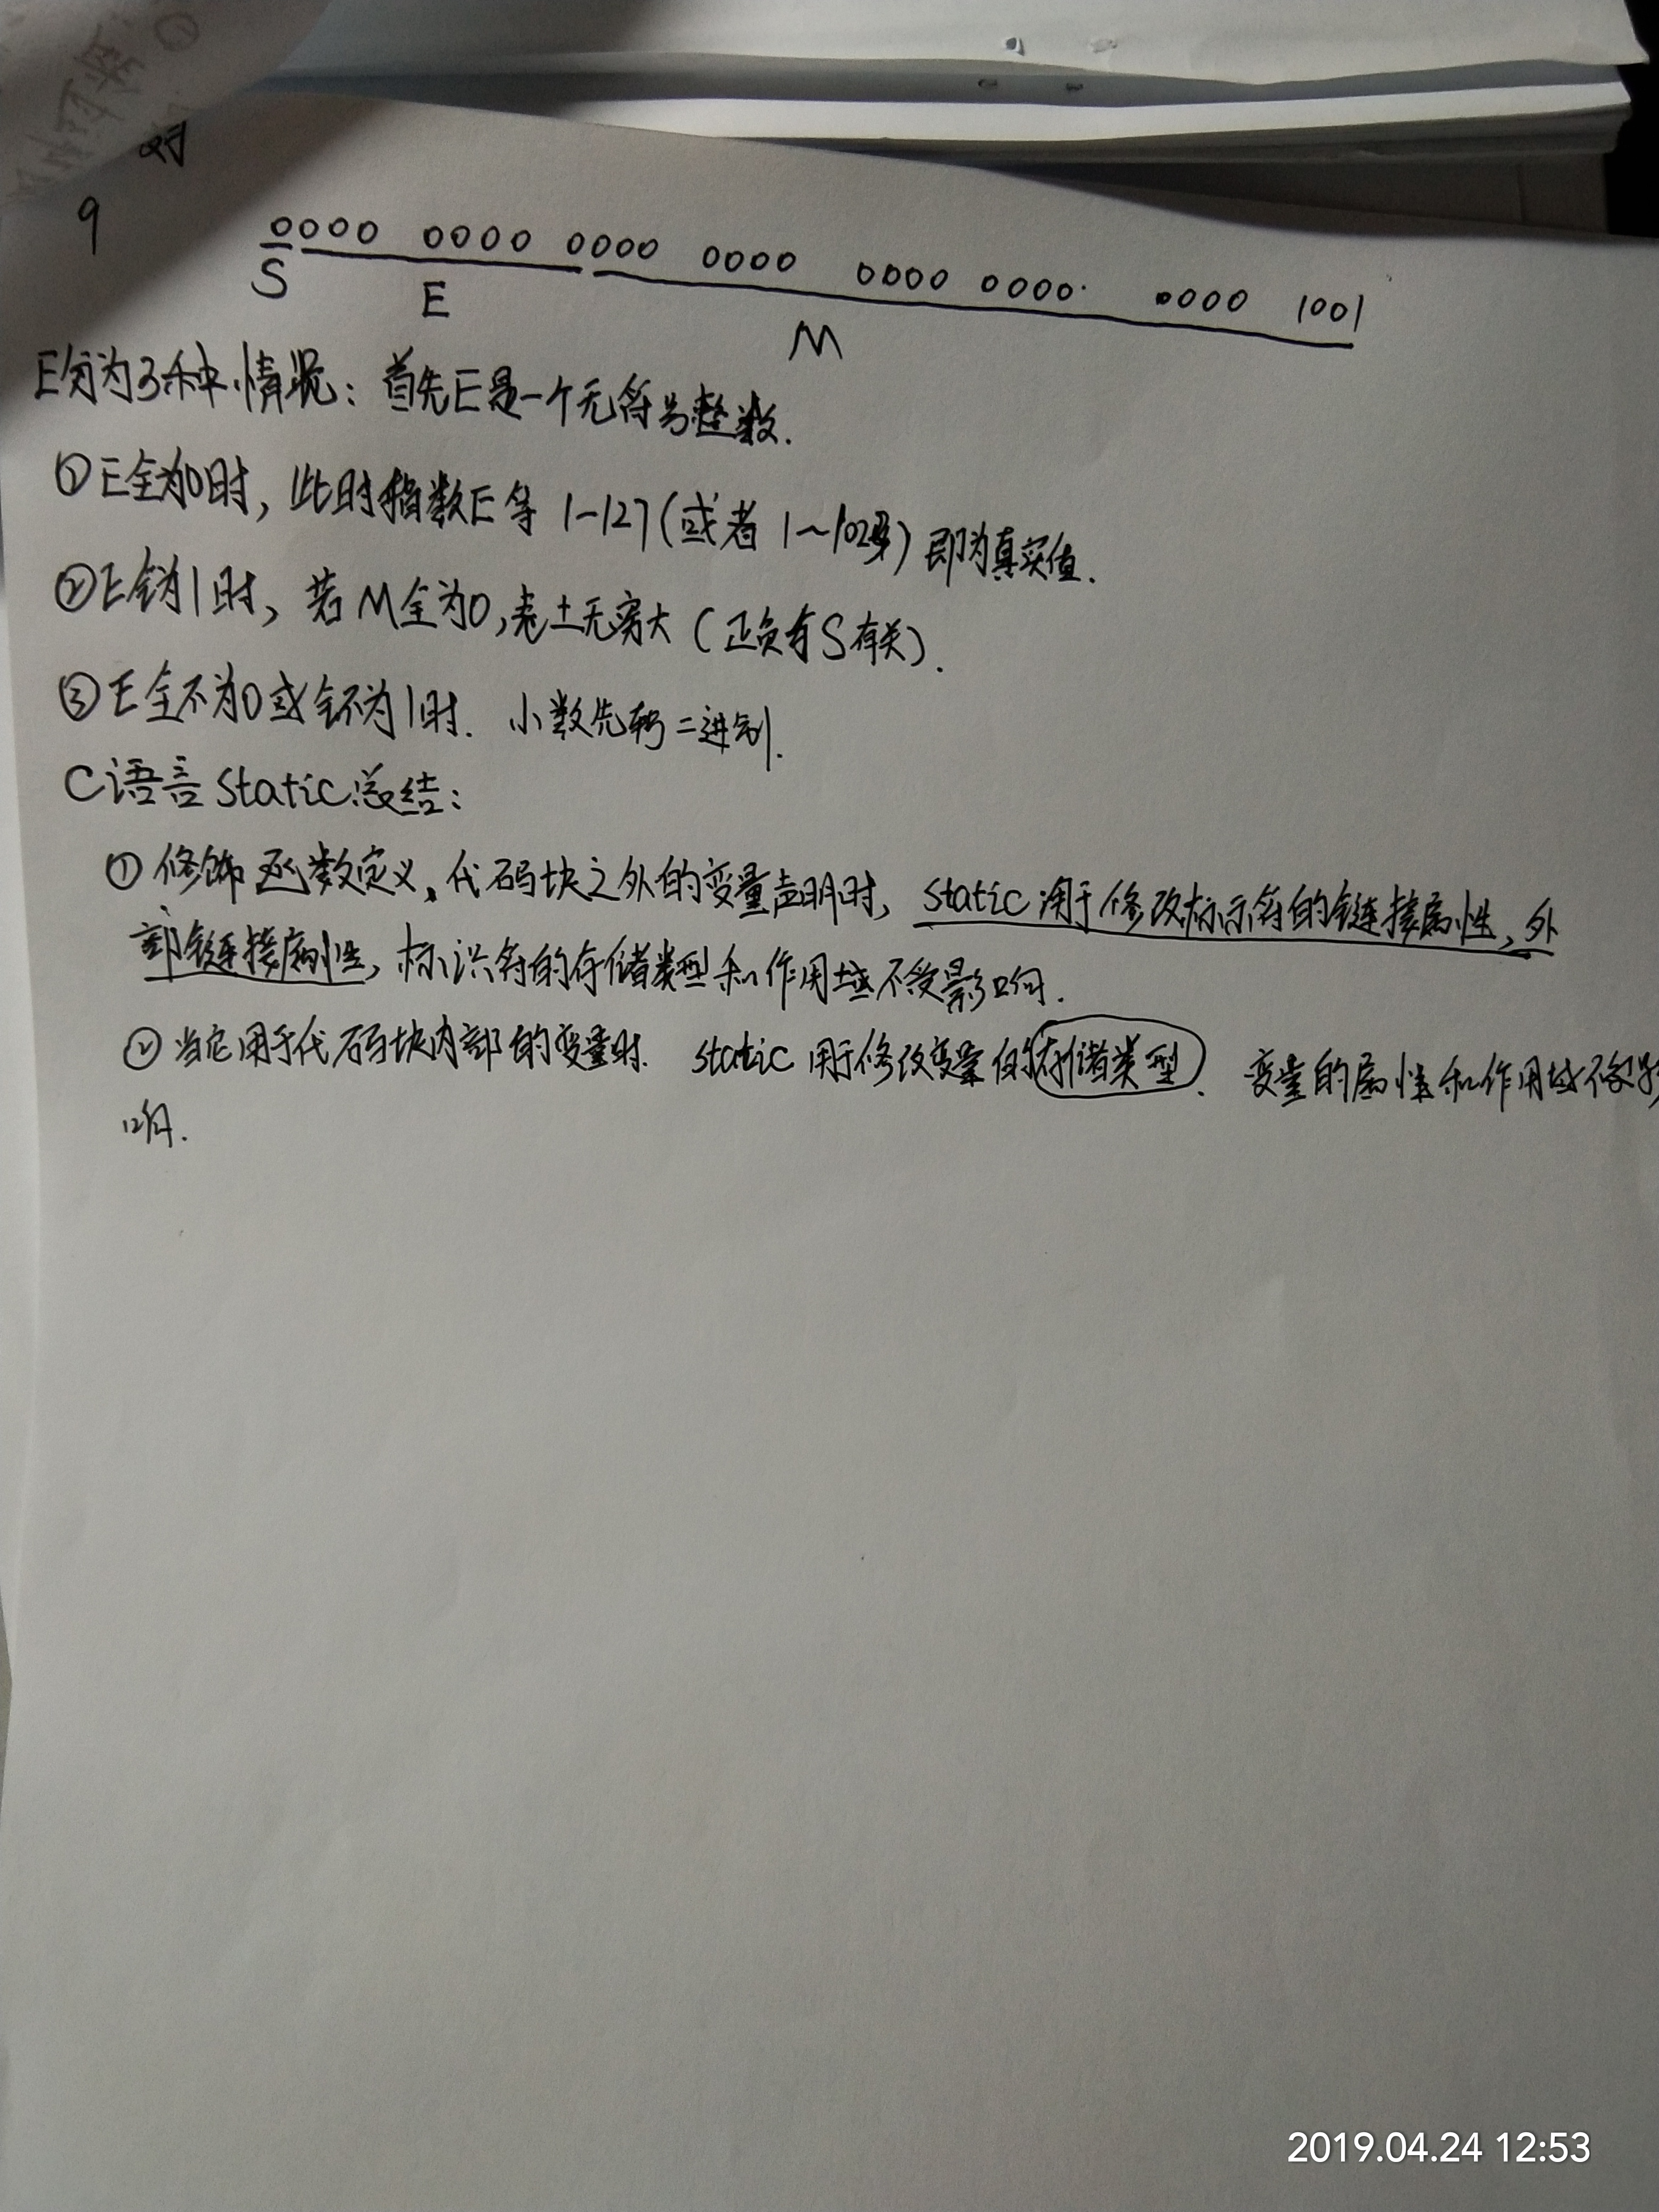 9 0000 0000 0000 0000 0000 0000 0000 1001
S E M
E分为3种情况：首先E是一个无符号整数.
①E全为0时，此时指数E等 1-127(或者 1~1023) 即为真实值.
②E全为1时，若M全为0,表±无穷大(正负有S有关).
③E全不为0或全不为1时. 小数先转二进制.
C语言static总结：
①修饰函数定义,代码块之外的变量声明时，static 用于修改标示符的链接属性,外
部链接属性，标识符的存储类型和作用域不受影响.
②当它用于代码块内部的变量时. static 用于修改变量的存储类型. 变量的属性和作用域不受影
响.
2019.04.24 12:53